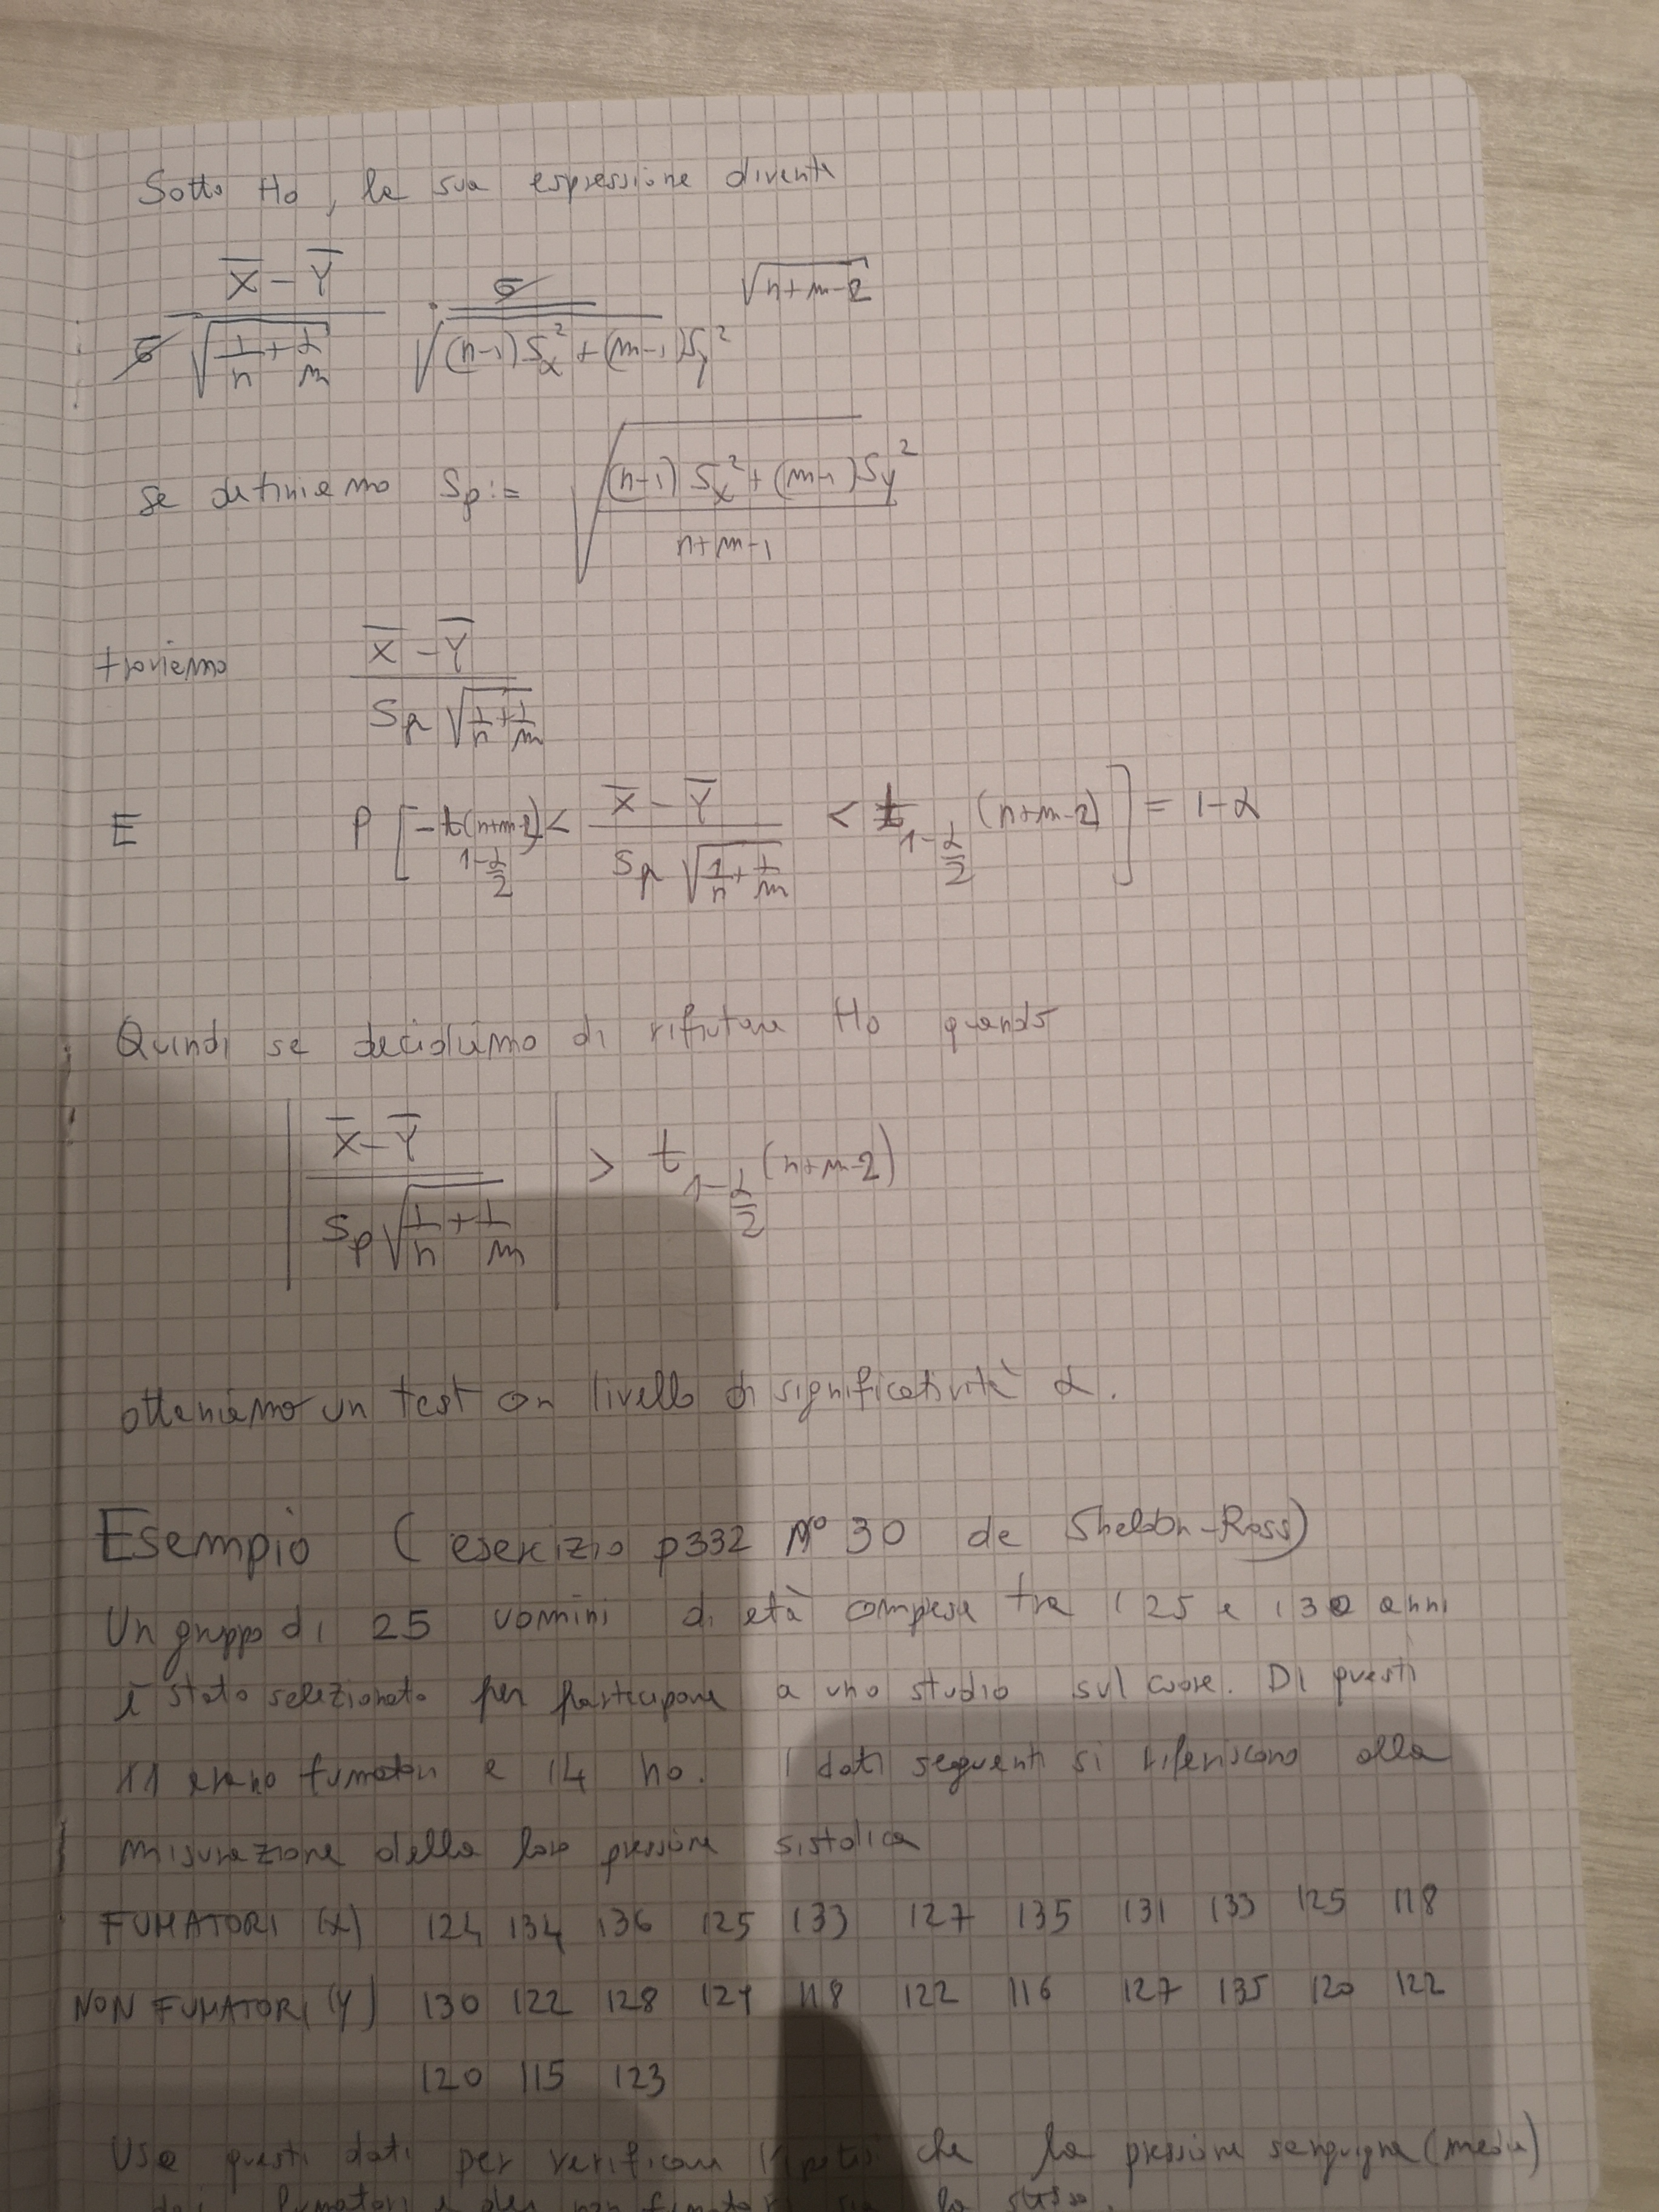 Sotto Ho, la sua espressione diventa
X̅ - Y̅ / σ √(1/n + 1/m) · σ / √((n-1) Sx² + (m-1) Sy²) √(n+m-2)
Se definiamo Sp := √(((n-1) Sx² + (m-1) Sy²) / (n+m-1))
troviamo (X̅ - Y̅) / (Sp √(1/n + 1/m))
E P [ -t 1-α/2 (n+m-2) < (X̅ - Y̅) / (Sp √(1/n + 1/m)) < t 1-α/2 (n+m-2) ] = 1-α
Quindi se decidiamo di rifiutare Ho quando
| (X̅ - Y̅) / (Sp √(1/n + 1/m)) | > t 1-α/2 (n+m-2)
otteniamo un test con livello di significatività α.
Esempio ( esercizio p332 N° 30 de Sheldon-Ross)
Un gruppo di 25 uomini di età compresa tra i 25 e i 30 anni
è stato selezionato per partecipare a uno studio sul cuore. Di questi
11 erano fumatori e 14 no. I dati seguenti si riferiscono alla
misurazione della loro pressione sistolica
FUMATORI (X) 124 134 136 125 133 127 135 131 133 125 118
NON FUMATORI (Y) 130 122 128 129 118 122 116 127 135 120 122
120 115 123
Usa questi dati per verificare l'ipotesi che la pressione sanguigna (media)
dei fumatori e dei non fumatori sia la stessa.